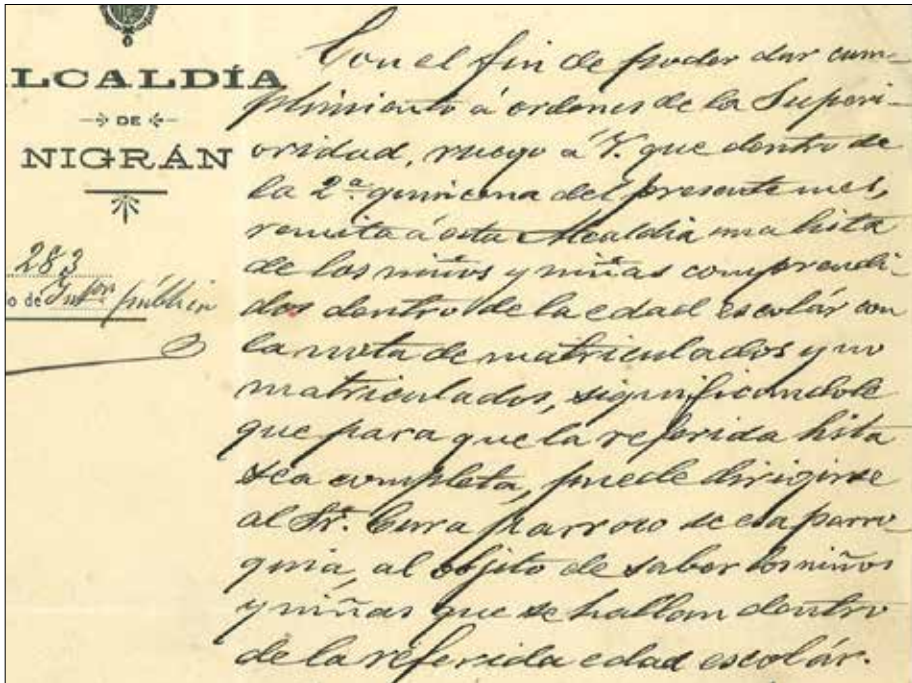 ALCALDÍA
DE
NIGRÁN
283
o de Inton pública
Con el fin de poder dar cum-
plimiento á ordenes de la Superi-
oridad, ruego á V. que dentro de
la 2ª quincena del presente mes,
remita á esta Alcaldia una lista
de los niños y niñas comprendi-
dos dentro de la edad escolár con
la nota de matriculados y no
matriculados, significandole
que para que la referida lista
sea completa, puede dirigirse
al Sr. Cura párroco de esa parro-
quia, al objeto de saber los niños
y niñas que se hallan dentro
de la referida edad escolár.